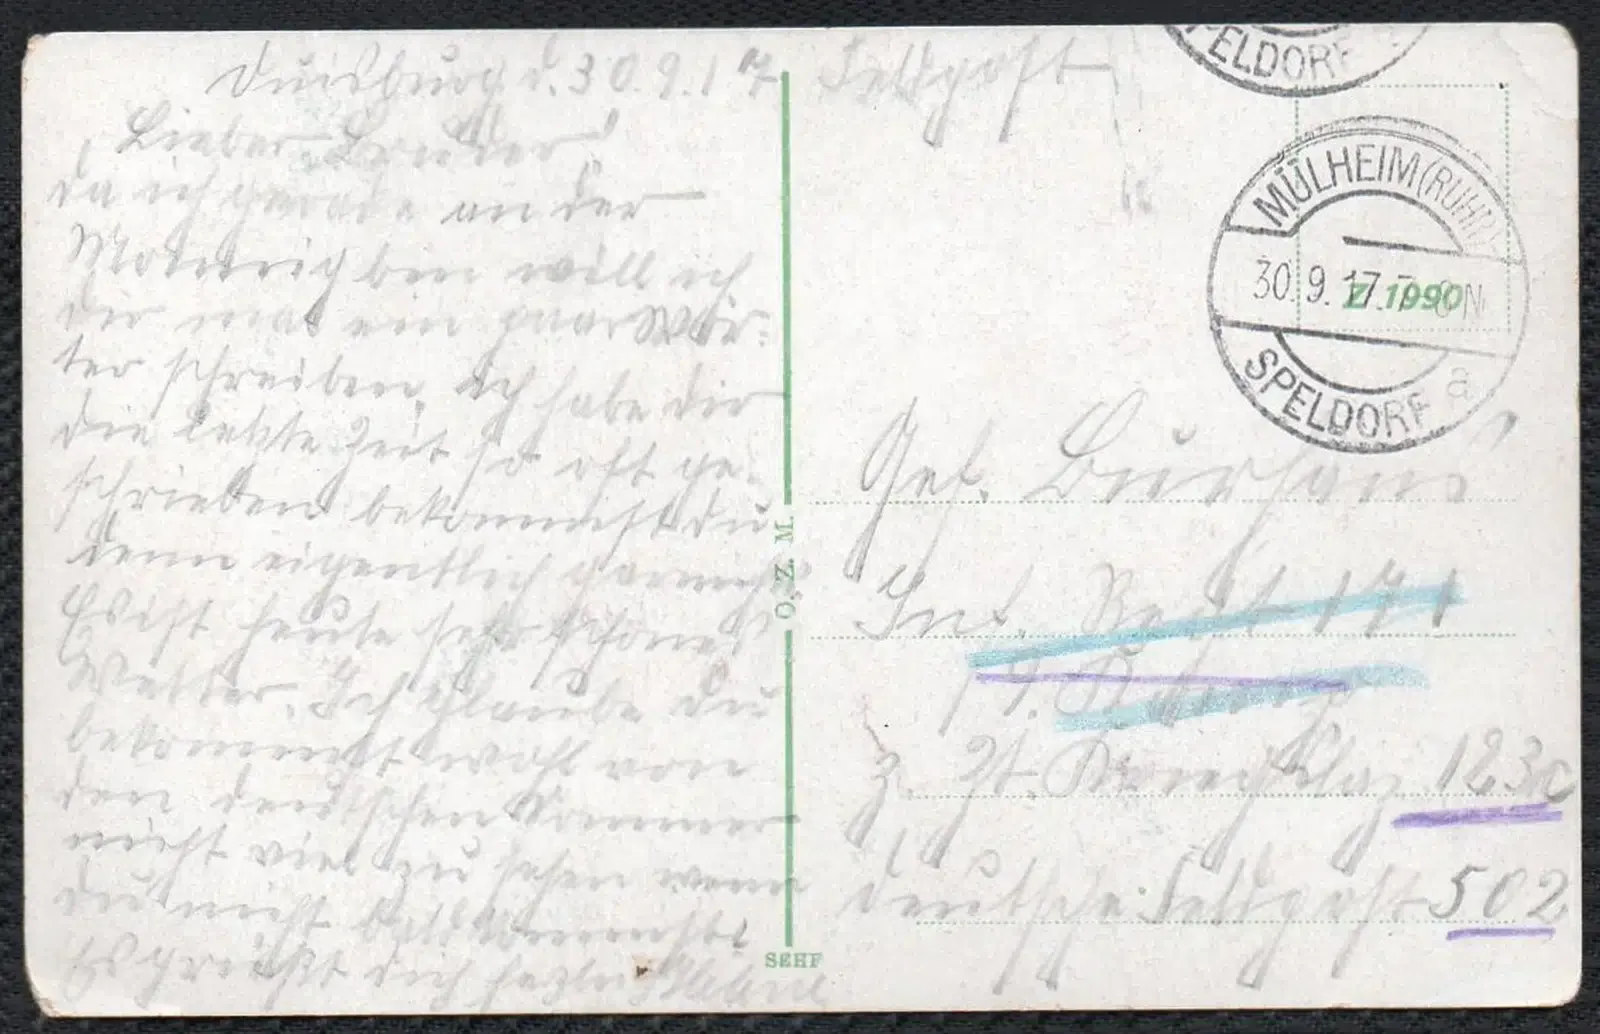 Duisburg d. 30.9.17
Lieber Bruder!
da ich gerade an der
bin will ich
dir mal ein paar Wör-
ter schreiben. Ich habe dir
die letzte Zeit so oft ge-
schrieben bekommst du
denn eigentlich garnichts
Es ist heute sehr schönes
Wetter. Ich glaube du
bekommst wohl von
den deutschen Sommer
nicht viel zu sehen wenn
du nicht bald kommst.
Es grüßt dich herzlich
Feldpost
SPELDORF
MÜLHEIM (RUHR)
30.9.17. 7-8N
SPELDORF a
Z. 1990
Gef.
Inf. Regt 171
z. Zt. Kriegslaz. 123c
deutsche Feldpost 502
O. Z. M.
SEHF